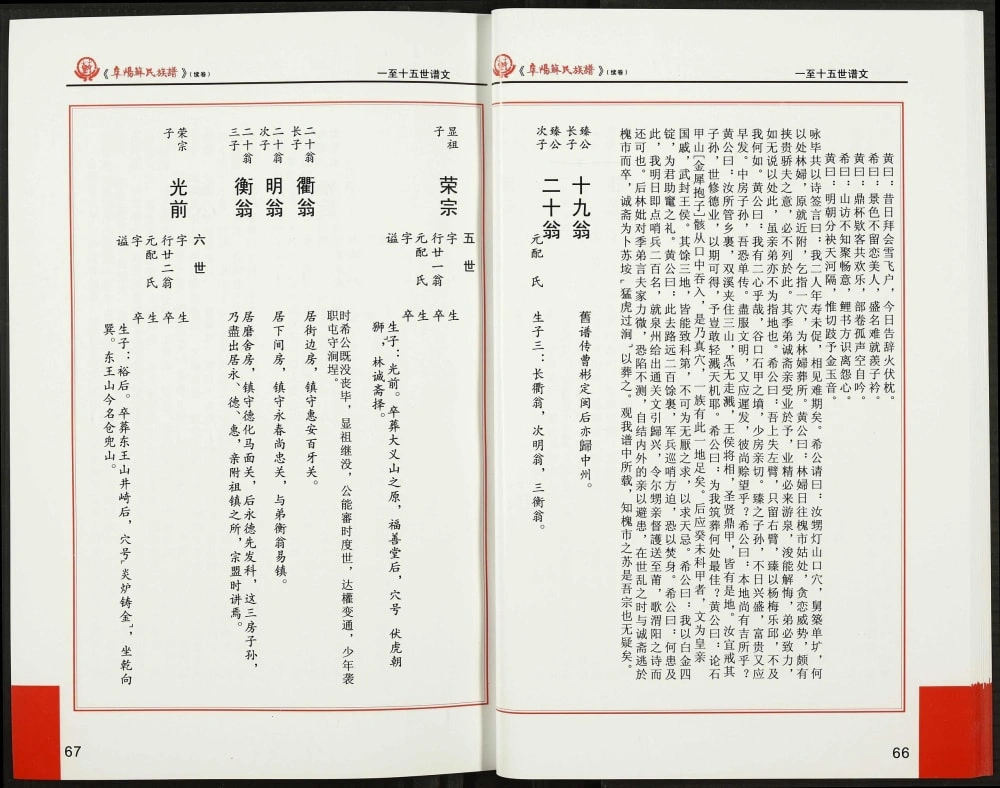 《阜陽蘇民族譜》(续卷)
一至十五世谱文
黄曰：昔日拜会雪飞户，今日告辞火伏枕。
希曰：景色不留恋美人，盛名难就羡子衿。
黄曰：鼎杯欵客共欢乐，部卷孤声空自吟。
希曰：山访不知聚畅意，鲤书方识离怨心。
黄曰：明朝分袂天河隔，惟切跂予金玉音。
咏毕共以诗签言曰：我二人年寿未促，相见难期矣。希公请曰：汝甥灯山口穴，舅築单圹，何
以处林婦，原就近附，乞指一穴，为林婦葬所。黄公曰：林婦日往槐市姑处，貪恋威势，颇有
挟贵骄夫之意，必不列於此。其季弟诚斋亲受业於予，业精必来游泉，浚能解悔，弟必致力，
如无说以处此，虽亲弟亦不为指地也。希公曰：吾上失左臂，只留右臂，臻以杨梅乐邱，不及
我何如。黄公曰：我有二心乎哉，谷口石甲之墳，少房亲切。臻之子孙，不日兴盛，富贵又应
早发。中房子孙，吾恐单传。盡服文明，又应遲发，彼尚赊望乎？希公曰：本地尚有吉所乎？
黄公曰：汝所管乡裏，双溪夹住三山，炁无走溅，王侯将相，圣贤鼎甲，皆有是地。汝宜戒其
子孙，世修德业，以期可得，予豈敢轻溅天机耶。希公曰：为我筑葬何处最佳？黄公曰：论石
甲山［金犀抱子］骸从口中吞入，是乃真穴，一族有此一地足矣。后应癸未科甲者，文为皇亲
国戚，武封王侯。其馀三地，皆能致科第，不可为无厭之求，以求天忌。希公曰：我以白金四
锭，为君助竈之礼。黄公曰：此去路远二百馀裏，军兵巡哨方迫，恐以焚身。希公曰：何患及
此，我明日即点哨兵二百名，就泉州给出通关文引歸興，令尔甥亲督護送至莆，歌渭阳之诗而
还可也。后林妣对季弟言夫家力微，恐陷不测，自结内外的亲以避患，在世乱之时与诚斋逃於
槐市而卒，诚斋为卜苏埃「猛虎过涧」以葬之。观我谱中所载，知槐市之苏是吾宗也无疑矣。
臻公
长子
十九翁
舊谱传曹彬定闽后亦歸中州。
臻公
次子
二十翁
元配 氏
生子三：长衢翁，次明翁，三衡翁。
66
《阜陽蘇民族譜》(续卷)
一至十五世谱文
五世
显祖
子
荣宗
字
行廿一翁
元配 氏
字
谥
生
卒
生
卒
生子：光前。卒葬大义山之原，福善堂后，穴号「伏虎朝
狮」，林诚斋择。
时希公既没丧毕，显祖继没，公能審时度世，达權变通，少年袭
职屯守涧埕。
二十翁
长子
衢翁
居街边房，镇守惠安百牙关。
二十翁
次子
明翁
居下间房，镇守永春尚忠关，与弟衡翁易镇。
二十翁
三子
衡翁
居磨舍房，镇守德化马面关，后永德先发科，这三房子孙，
乃盡出居永、德、惠，亲附祖镇之所，宗盟时讲焉。
六世
荣宗
子
光前
字
行廿二翁
元配 氏
字
谥
生
卒
生
卒
生子：裕后。卒葬东王山井崎后，穴号「炎炉铸金」，坐乾向
巽。东王山今名仓兜山。
67